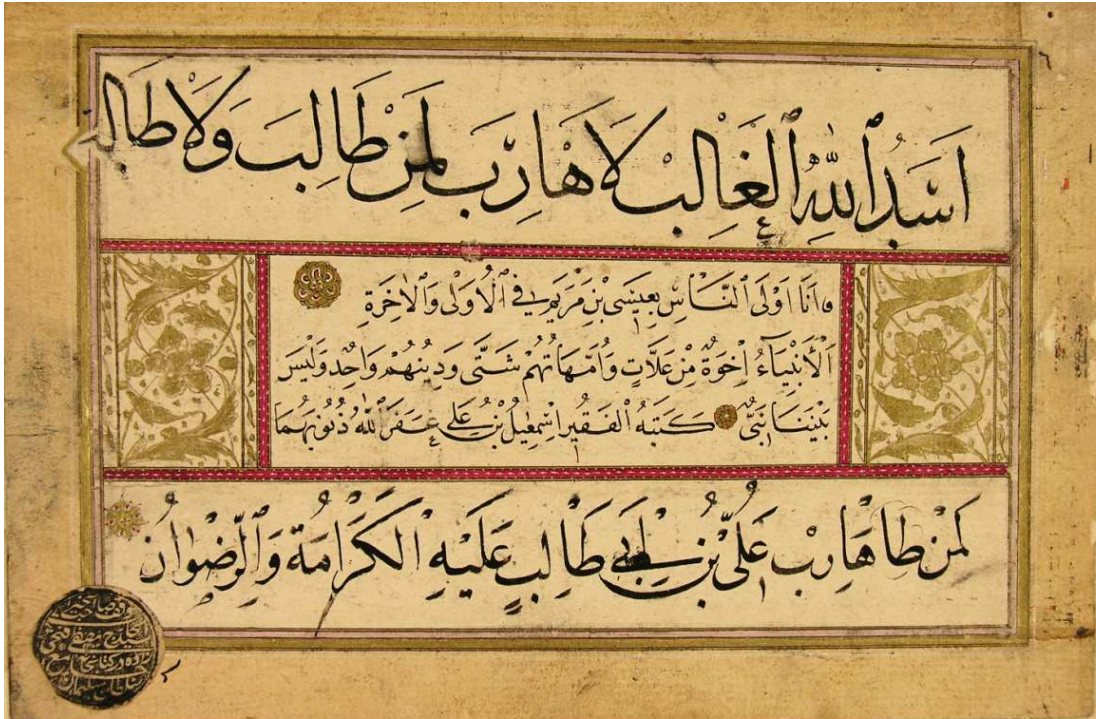 اَسَدُ ٱللهِ ٱلْغَالِبْ لَا هَارِبَ لِمَنْ طَالِبَ وَلَا طَالِبَ
وانَا اَوْلَى ٱلنَّاسِ بِعِيسَى بْنِ مَرْيَمَ فِي ٱلْاُولٰى وَٱلْاٰخِرَةِ
اَلْاَنْبِيَاءُ اِخْوَةٌ مِنْ عَلَّاتٍ وَاُمَّهَاتُهُمْ شَتّٰى وَدِينُهُمْ وَاحِدٌ وَلَيْسَ
بَيْنَنَا نَبِيٌّ كَتَبَهُ ٱلْفَقِيرُ اِسْمٰعِيلُ بْنُ عَلِي غَفَرَ ٱللهُ ذُنُوبَهُمَا
لِمَنْ هَارِبْ عَلِيُّ بْنُ اَبِي طَالِبٍ عَلَيْهِ ٱلْكَرَامَةُ وَٱلرِّضْوَانُ